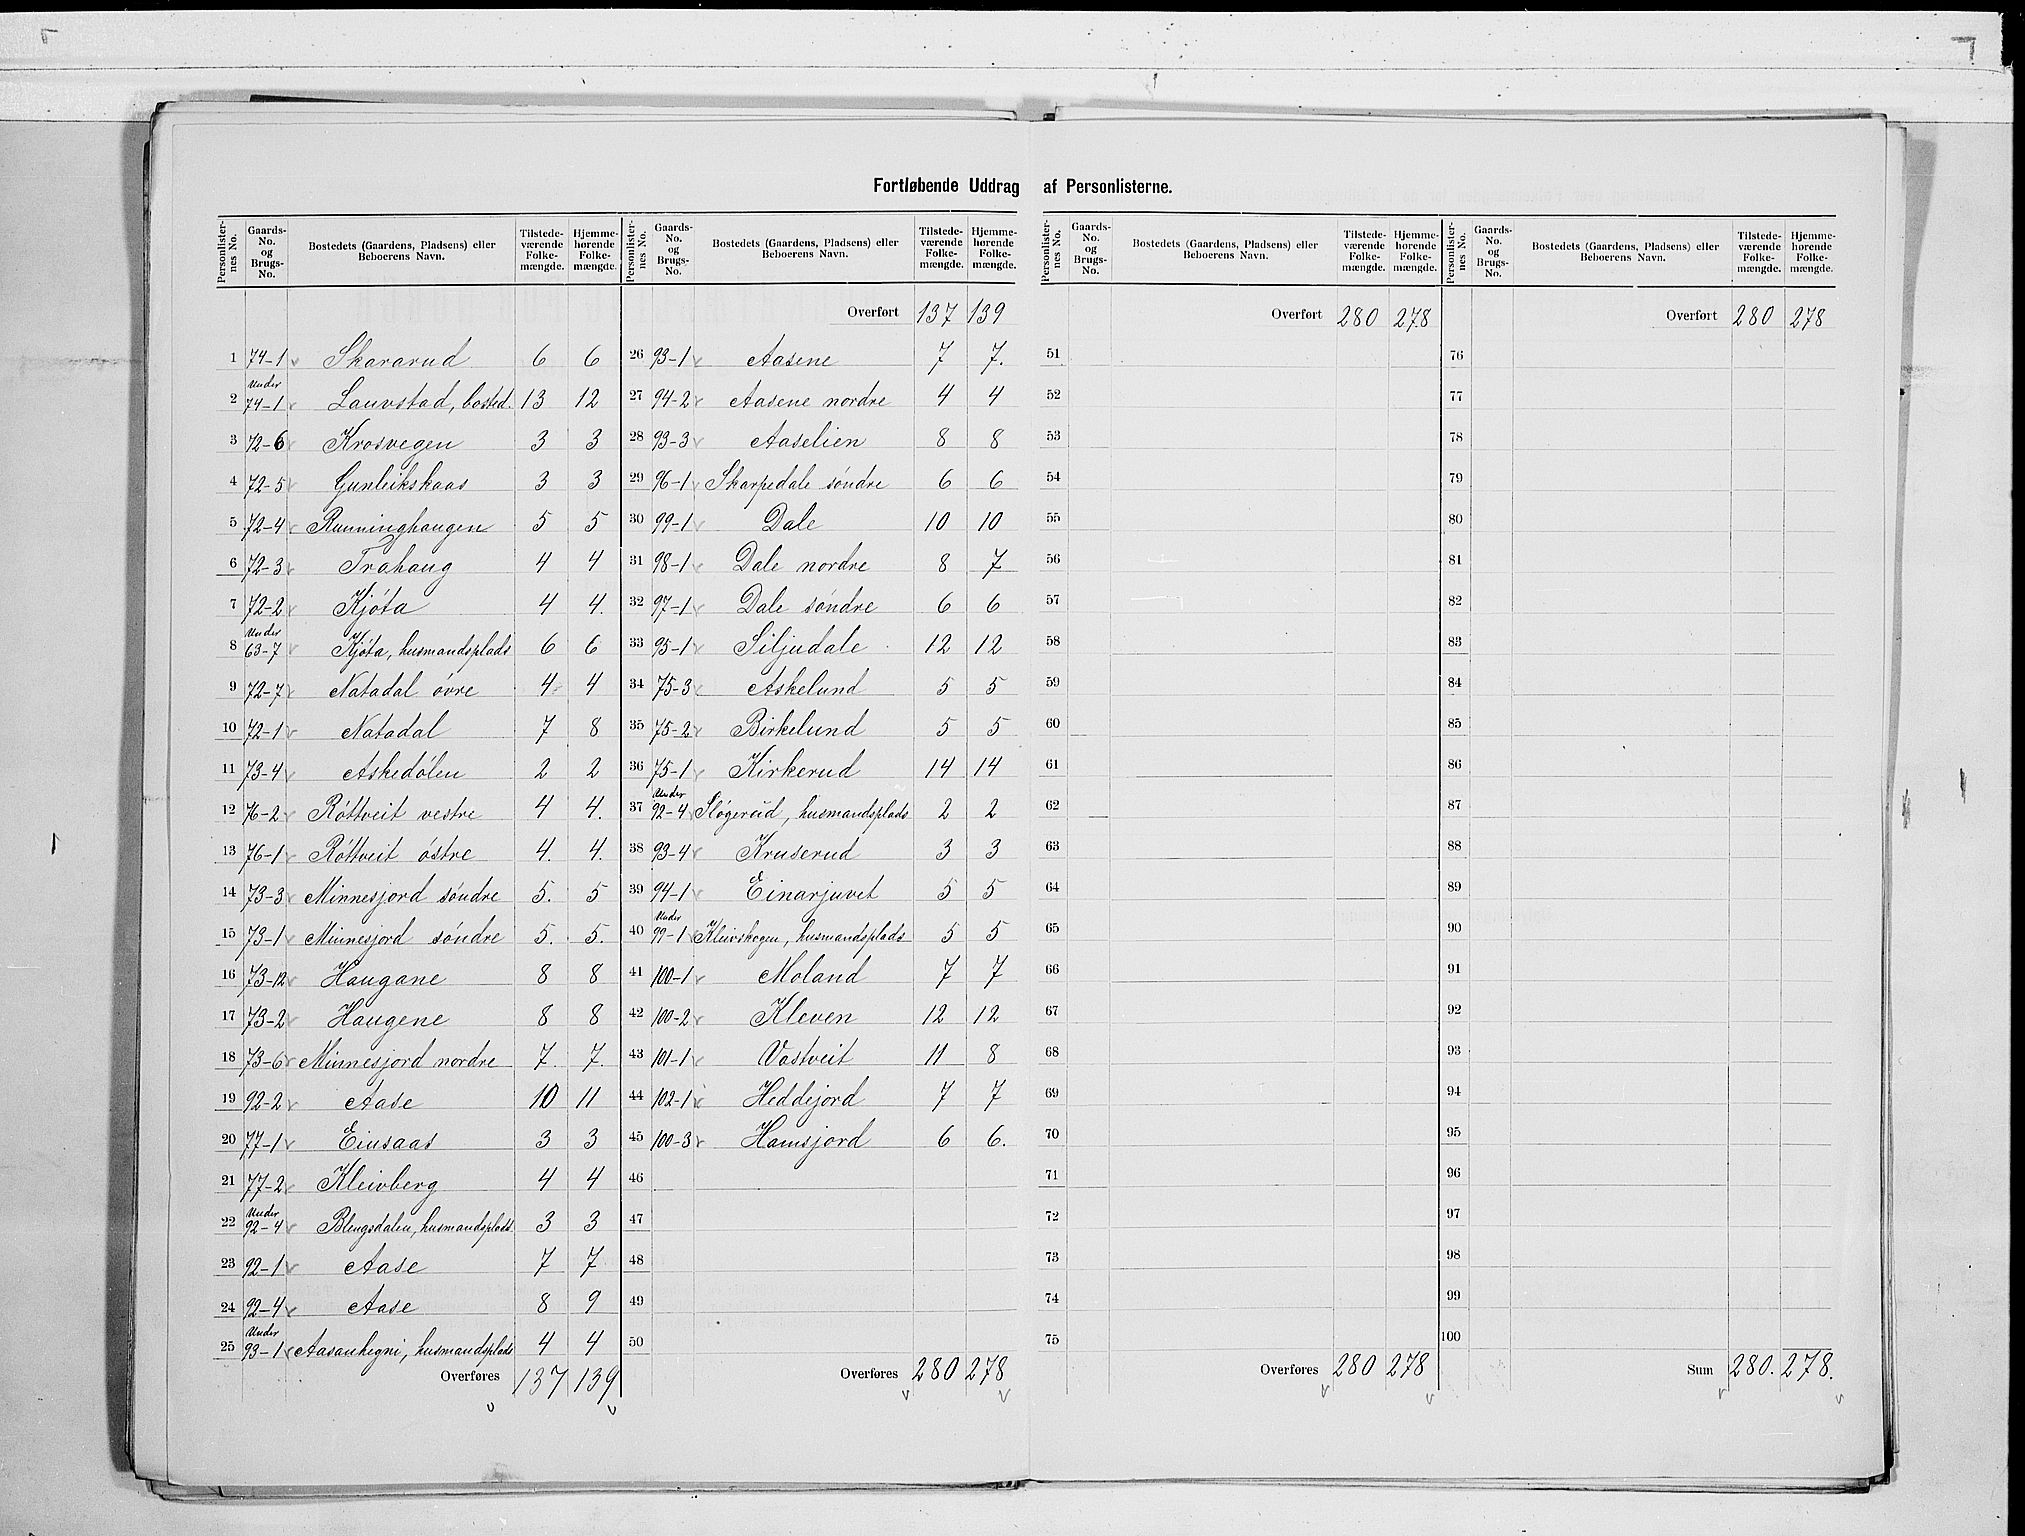 Fortløbende Uddrag af Personlisterne.
Personlisternes No. | Gaards-No. og Brugs-No. | Bostedets (Gaardens, Pladsens) eller Beboerens Navn. | Tilstedeværende Folkemængde. | Hjemmehørende Folkemængde.
1 74-1 Skararud 6 6
2 Under 74-1 Lauvstad, bosted. 13 12
3 72-6 Krosvegen 3 3
4 72-5 Gunleikskaas 3 3
5 72-4 Runninghaugen 5 5
6 72-3 Trahaug 4 4
7 72-2 Kjøta 4 4.
8 Under 63-7 Kjøta, husmandsplads 6 6
9 72-7 Natadal øvre 4 4
10 72-1 Natadal 7 8
11 73-4 Askedølen 2 2
12 76-2 Røttveit vestre 4 4.
13 76-1 Røttveit østre 4. 4.
14 73-3 Minnesjord søndre 5. 5
15 73-1 Minnesjord søndre 5. 5.
16 73-12 Haugane 8 8
17 73-2 Haugene 8 8
18 73-6 Minnesjord nordre 7. 7.
19 92-2 Aase 10 11
20 77-1 Einsaas 3 3
21 77-2 Kleivberg 4 4
22 Under 92-4 Blengsdalen, husmandsplads 3 3
23 92-1 Aase 7 7
24 92-4 Aase 8 9
25 Under 93-1 Aasanhegni, husmandsplads 4 4
Overføres 137 139
Personlisternes No. | Gaards-No. og Brugs-No. | Bostedets (Gaardens, Pladsens) eller Beboerens Navn. | Tilstedeværende Folkemængde. | Hjemmehørende Folkemængde.
Overført 137 139
26 93-1 Aasene 7 7.
27 94-2 Aasene nordre 4 4
28 93-3 Aaselien 8 8
29 96-1 Skarpedale søndre 6 6
30 99-1 Dale 10 10
31 98-1 Dale nordre 8 7
32 97-1 Dale søndre 6 6
33 95-1 Siljudale 12 12
34 75-3 Askelund 5 5
35 75-2 Birkelund 5 5
36 75-1 Kirkerud 14 14
37 Under 92-4 Sløgereid, husmandsplads 2 2
38 93-4 Kruserud 3 3
39 94-1 Einarjuvet 5 5
40 Under 99-1 Kleivskogen, husmandsplads 5 5
41 100-1 Moland 7 7
42 100-2 Kleven 12 12
43 101-1 Vastveit 11 8
44 102-1 Heddejord 7 7
45 100-3 Hamsjord 6 6.
46
47
48
49
50
Overføres 280 278
Personlisternes No. | Gaards-No. og Brugs-No. | Bostedets (Gaardens, Pladsens) eller Beboerens Navn. | Tilstedeværende Folkemængde. | Hjemmehørende Folkemængde.
Overført 280 278
51
52
53
54
55
56
57
58
59
60
61
62
63
64
65
66
67
68
69
70
71
72
73
74
75
Overføres 280 278
Personlisternes No. | Gaards-No. og Brugs-No. | Bostedets (Gaardens, Pladsens) eller Beboerens Navn. | Tilstedeværende Folkemængde. | Hjemmehørende Folkemængde.
Overført 280 278
76
77
78
79
80
81
82
83
84
85
86
87
88
89
90
91
92
93
94
95
96
97
98
99
100
Sum 280. 278.